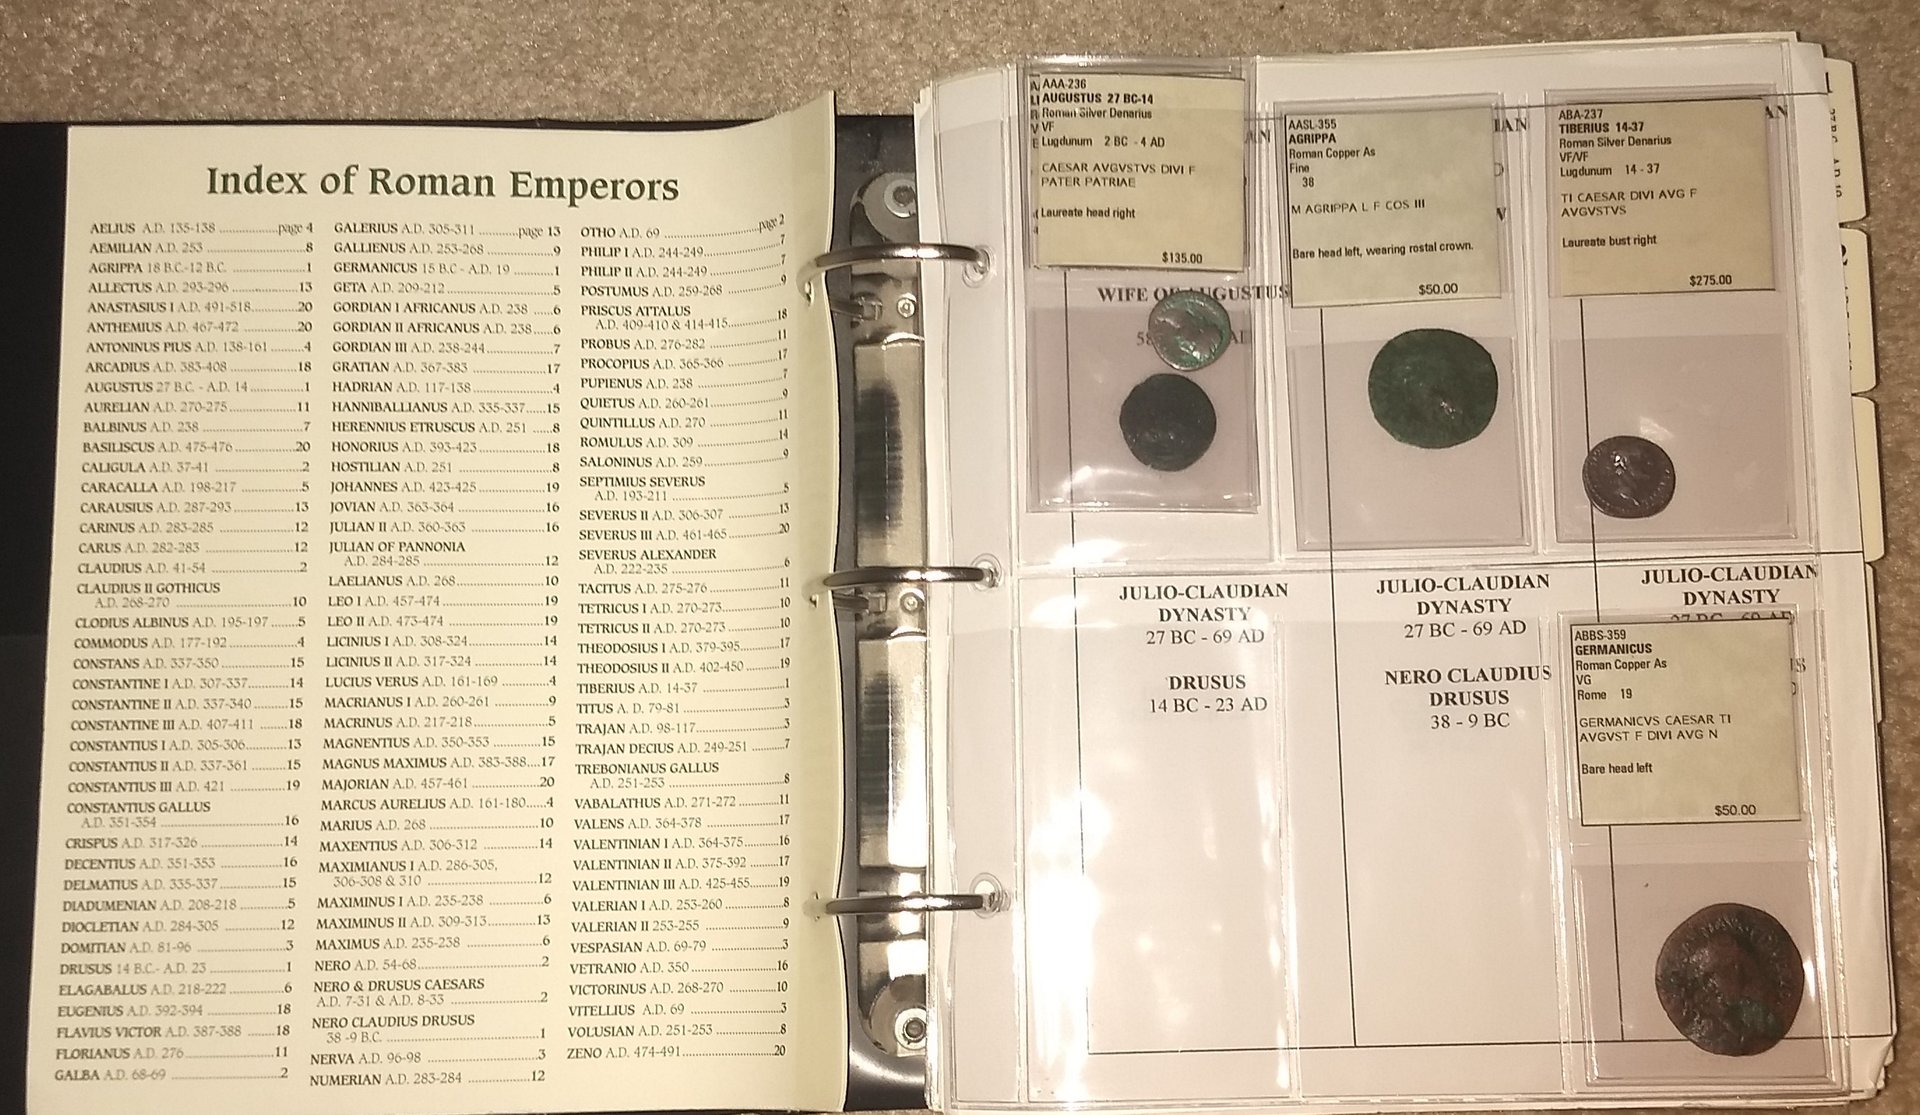 Index of Roman Emperors
AELIUS A.D. 135-138 ..... page 4
AEMILIAN A.D. 253 ..... 8
AGRIPPA 18 B.C.-12 B.C. ..... 1
ALLECTUS A.D. 293-296 ..... 13
ANASTASIUS I A.D. 491-518 ..... 20
ANTHEMIUS A.D. 467-472 ..... 20
ANTONINUS PIUS A.D. 138-161 ..... 4
ARCADIUS A.D. 383-408 ..... 18
AUGUSTUS 27 B.C. - A.D. 14 ..... 1
AURELIAN A.D. 270-275 ..... 11
BALBINUS A.D. 238 ..... 7
BASILISCUS A.D. 475-476 ..... 20
CALIGULA A.D. 37-41 ..... 2
CARACALLA A.D. 198-217 ..... 5
CARAUSIUS A.D. 287-293 ..... 13
CARINUS A.D. 283-285 ..... 12
CARUS A.D. 282-283 ..... 12
CLAUDIUS A.D. 41-54 ..... 2
CLAUDIUS II GOTHICUS
A.D. 268-270 ..... 10
CLODIUS ALBINUS A.D. 195-197 ..... 5
COMMODUS A.D. 177-192 ..... 4
CONSTANS A.D. 337-350 ..... 15
CONSTANTINE I A.D. 307-337 ..... 14
CONSTANTINE II A.D. 337-340 ..... 15
CONSTANTINE III A.D. 407-411 ..... 18
CONSTANTIUS I A.D. 305-306 ..... 13
CONSTANTIUS II A.D. 337-361 ..... 15
CONSTANTIUS III A.D. 421 ..... 19
CONSTANTIUS GALLUS
A.D. 351-354 ..... 16
CRISPUS A.D. 317-326 ..... 14
DECENTIUS A.D. 351-353 ..... 16
DELMATIUS A.D. 335-337 ..... 15
DIADUMENIAN A.D. 208-218 ..... 5
DIOCLETIAN A.D. 284-305 ..... 12
DOMITIAN A.D. 81-96 ..... 3
DRUSUS 14 B.C.- A.D. 23 ..... 1
ELAGABALUS A.D. 218-222 ..... 6
EUGENIUS A.D. 392-394 ..... 18
FLAVIUS VICTOR A.D. 387-388 ..... 18
FLORIANUS A.D. 276 ..... 11
GALBA A.D. 68-69 ..... 2
GALERIUS A.D. 305-311 ..... page 13
GALLIENUS A.D. 253-268 ..... 9
GERMANICUS 15 B.C - A.D. 19 ..... 1
GETA A.D. 209-212 ..... 5
GORDIAN I AFRICANUS A.D. 238 ..... 6
GORDIAN II AFRICANUS A.D. 238 ..... 6
GORDIAN III A.D. 238-244 ..... 7
GRATIAN A.D. 367-383 ..... 17
HADRIAN A.D. 117-138 ..... 4
HANNIBALLIANUS A.D. 335-337 ..... 15
HERENNIUS ETRUSCUS A.D. 251 ..... 8
HONORIUS A.D. 393-423 ..... 18
HOSTILIAN A.D. 251 ..... 8
JOHANNES A.D. 423-425 ..... 19
JOVIAN A.D. 363-364 ..... 16
JULIAN II A.D. 360-363 ..... 16
JULIAN OF PANNONIA
A.D. 284-285 ..... 12
LAELIANUS A.D. 268 ..... 10
LEO I A.D. 457-474 ..... 19
LEO II A.D. 473-474 ..... 19
LICINIUS I A.D. 308-324 ..... 14
LICINIUS II A.D. 317-324 ..... 14
LUCIUS VERUS A.D. 161-169 ..... 4
MACRIANUS I A.D. 260-261 ..... 9
MACRINUS A.D. 217-218 ..... 5
MAGNENTIUS A.D. 350-353 ..... 15
MAGNUS MAXIMUS A.D. 383-388 ..... 17
MAJORIAN A.D. 457-461 ..... 20
MARCUS AURELIUS A.D. 161-180 ..... 4
MARIUS A.D. 268 ..... 10
MAXENTIUS A.D. 306-312 ..... 14
MAXIMIANUS I A.D. 286-305,
306-308 & 310 ..... 12
MAXIMINUS I A.D. 235-238 ..... 6
MAXIMINUS II A.D. 309-313 ..... 13
MAXIMUS A.D. 235-238 ..... 6
NERO A.D. 54-68 ..... 2
NERO & DRUSUS CAESARS
A.D. 7-31 & A.D. 8-33 ..... 2
NERO CLAUDIUS DRUSUS
38 -9 B.C. ..... 1
NERVA A.D. 96-98 ..... 3
NUMERIAN A.D. 283-284 ..... 12
OTHO A.D. 69 ..... page 2
PHILIP I A.D. 244-249 ..... 7
PHILIP II A.D. 244-249 ..... 7
POSTUMUS A.D. 259-268 ..... 9
PRISCUS ATTALUS
A.D. 409-410 & 414-415 ..... 18
PROBUS A.D. 276-282 ..... 11
PROCOPIUS A.D. 365-366 ..... 17
PUPIENUS A.D. 238 ..... 7
QUIETUS A.D. 260-261 ..... 9
QUINTILLUS A.D. 270 ..... 11
ROMULUS A.D. 309 ..... 14
SALONINUS A.D. 259 ..... 9
SEPTIMIUS SEVERUS
A.D. 193-211 ..... 5
SEVERUS II A.D. 306-307 ..... 13
SEVERUS III A.D. 461-465 ..... 20
SEVERUS ALEXANDER
A.D. 222-235 ..... 6
TACITUS A.D. 275-276 ..... 11
TETRICUS I A.D. 270-273 ..... 10
TETRICUS II A.D. 270-273 ..... 10
THEODOSIUS I A.D. 379-395 ..... 17
THEODOSIUS II A.D. 402-450 ..... 19
TIBERIUS A.D. 14-37 ..... 1
TITUS A. D. 79-81 ..... 3
TRAJAN A.D. 98-117 ..... 3
TRAJAN DECIUS A.D. 249-251 ..... 7
TREBONIANUS GALLUS
A.D. 251-253 ..... 8
VABALATHUS A.D. 271-272 ..... 11
VALENS A.D. 364-378 ..... 17
VALENTINIAN I A.D. 364-375 ..... 16
VALENTINIAN II A.D. 375-392 ..... 17
VALENTINIAN III A.D. 425-455 ..... 19
VALERIAN I A.D. 253-260 ..... 8
VALERIAN II 253-255 ..... 9
VESPASIAN A.D. 69-79 ..... 3
VETRANIO A.D. 350 ..... 16
VICTORINUS A.D. 268-270 ..... 10
VITELLIUS A.D. 69 ..... 3
VOLUSIAN A.D. 251-253 ..... 8
ZENO A.D. 474-491 ..... 20
AAA-236
AUGUSTUS 27 BC-14
Roman Silver Denarius
VF
Lugdunum 2 BC - 4 AD
CAESAR AVGVSTVS DIVI F
PATER PATRIAE
Laureate head right
$135.00
WIFE OF AUGUSTUS
AASL-355
AGRIPPA
Roman Copper As
Fine
38
M AGRIPPA L F COS III
Bare head left, wearing rostal crown.
$50.00
ABA-237
TIBERIUS 14-37
Roman Silver Denarius
VF/VF
Lugdunum 14 - 37
TI CAESAR DIVI AVG F
AVGVSTVS
Laureate bust right
$275.00
JULIO-CLAUDIAN
DYNASTY
27 BC - 69 AD
DRUSUS
14 BC - 23 AD
JULIO-CLAUDIAN
DYNASTY
27 BC - 69 AD
NERO CLAUDIUS
DRUSUS
38 - 9 BC
JULIO-CLAUDIAN
DYNASTY
27 BC - 69 AD
ABBS-359
GERMANICUS
Roman Copper As
VG
Rome 19
GERMANICVS CAESAR TI
AVGVST F DIVI AVG N
Bare head left
$50.00